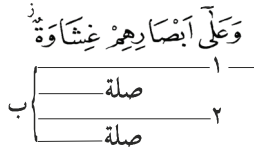 وَعَلَىٰٓ اَبْصَارِهِمْ غِشَاوَةٌ ز
١
صلة
ب
٢
صلة